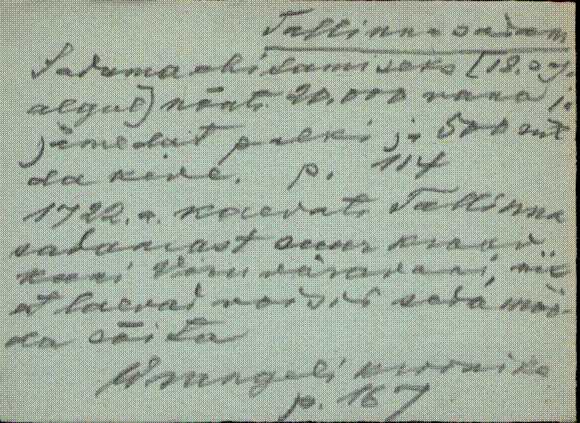 Tallinna sadam
Sadama ehitamiseks (18. saj.
algul) nõuti 20.000 raua ja
jämedat palki ja 500 sült
da kive. p. 114
1722. a. kaevati Tallinna
sadamast suur kraav
kuni Viru väravani, nii
et laevad võisid seda möö-
da sõita
Wrangeli kroonika
p. 167